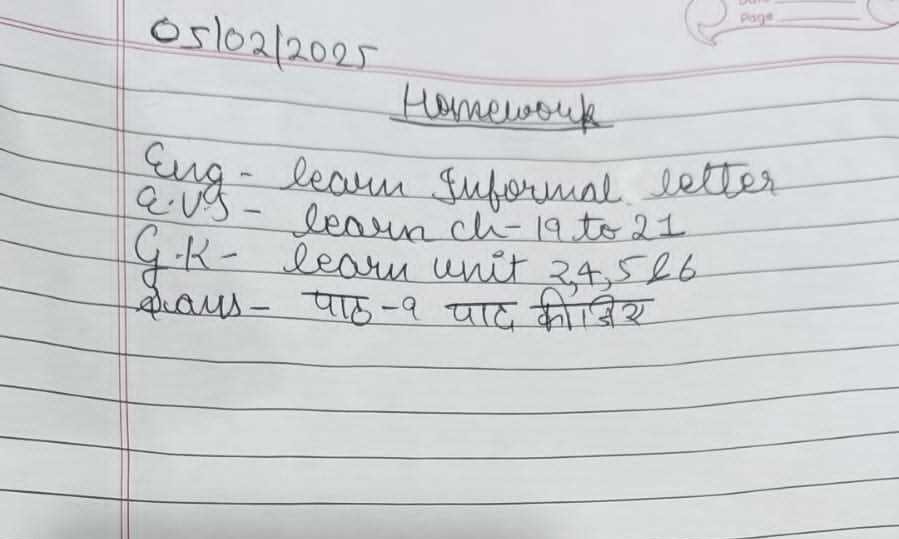 Date
Page
05/02/2025
Homework
Eng - learn Informal letter
E.V.S - learn ch-19 to 21
G.K - learn unit 3,4,5 & 6
Sans - पाठ -9 याद कीजिए